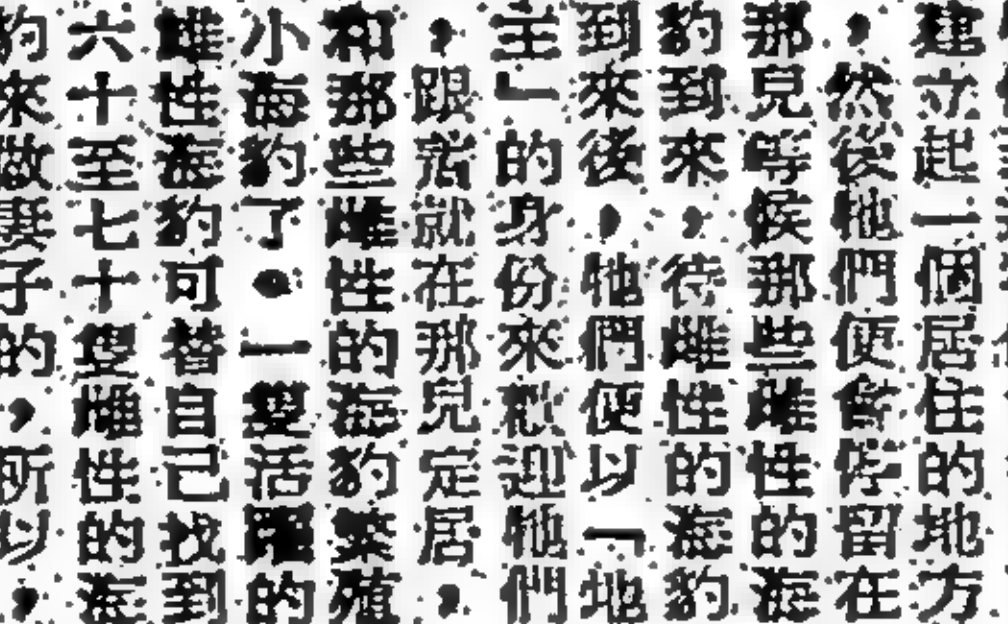 建立起一個居住的地方
，然後牠們便會停留在
那兒等候那些雌性的海
豹到來，待雌性的海豹
到來後，牠們便以「地
主」的身份來歡迎牠們
，跟着就在那兒定居，
和那些雌性的海豹繁殖
小海豹了。一隻活躍的
雄性海豹可替自己找到
六十至七十隻雌性的海
豹來做妻子的，所以，